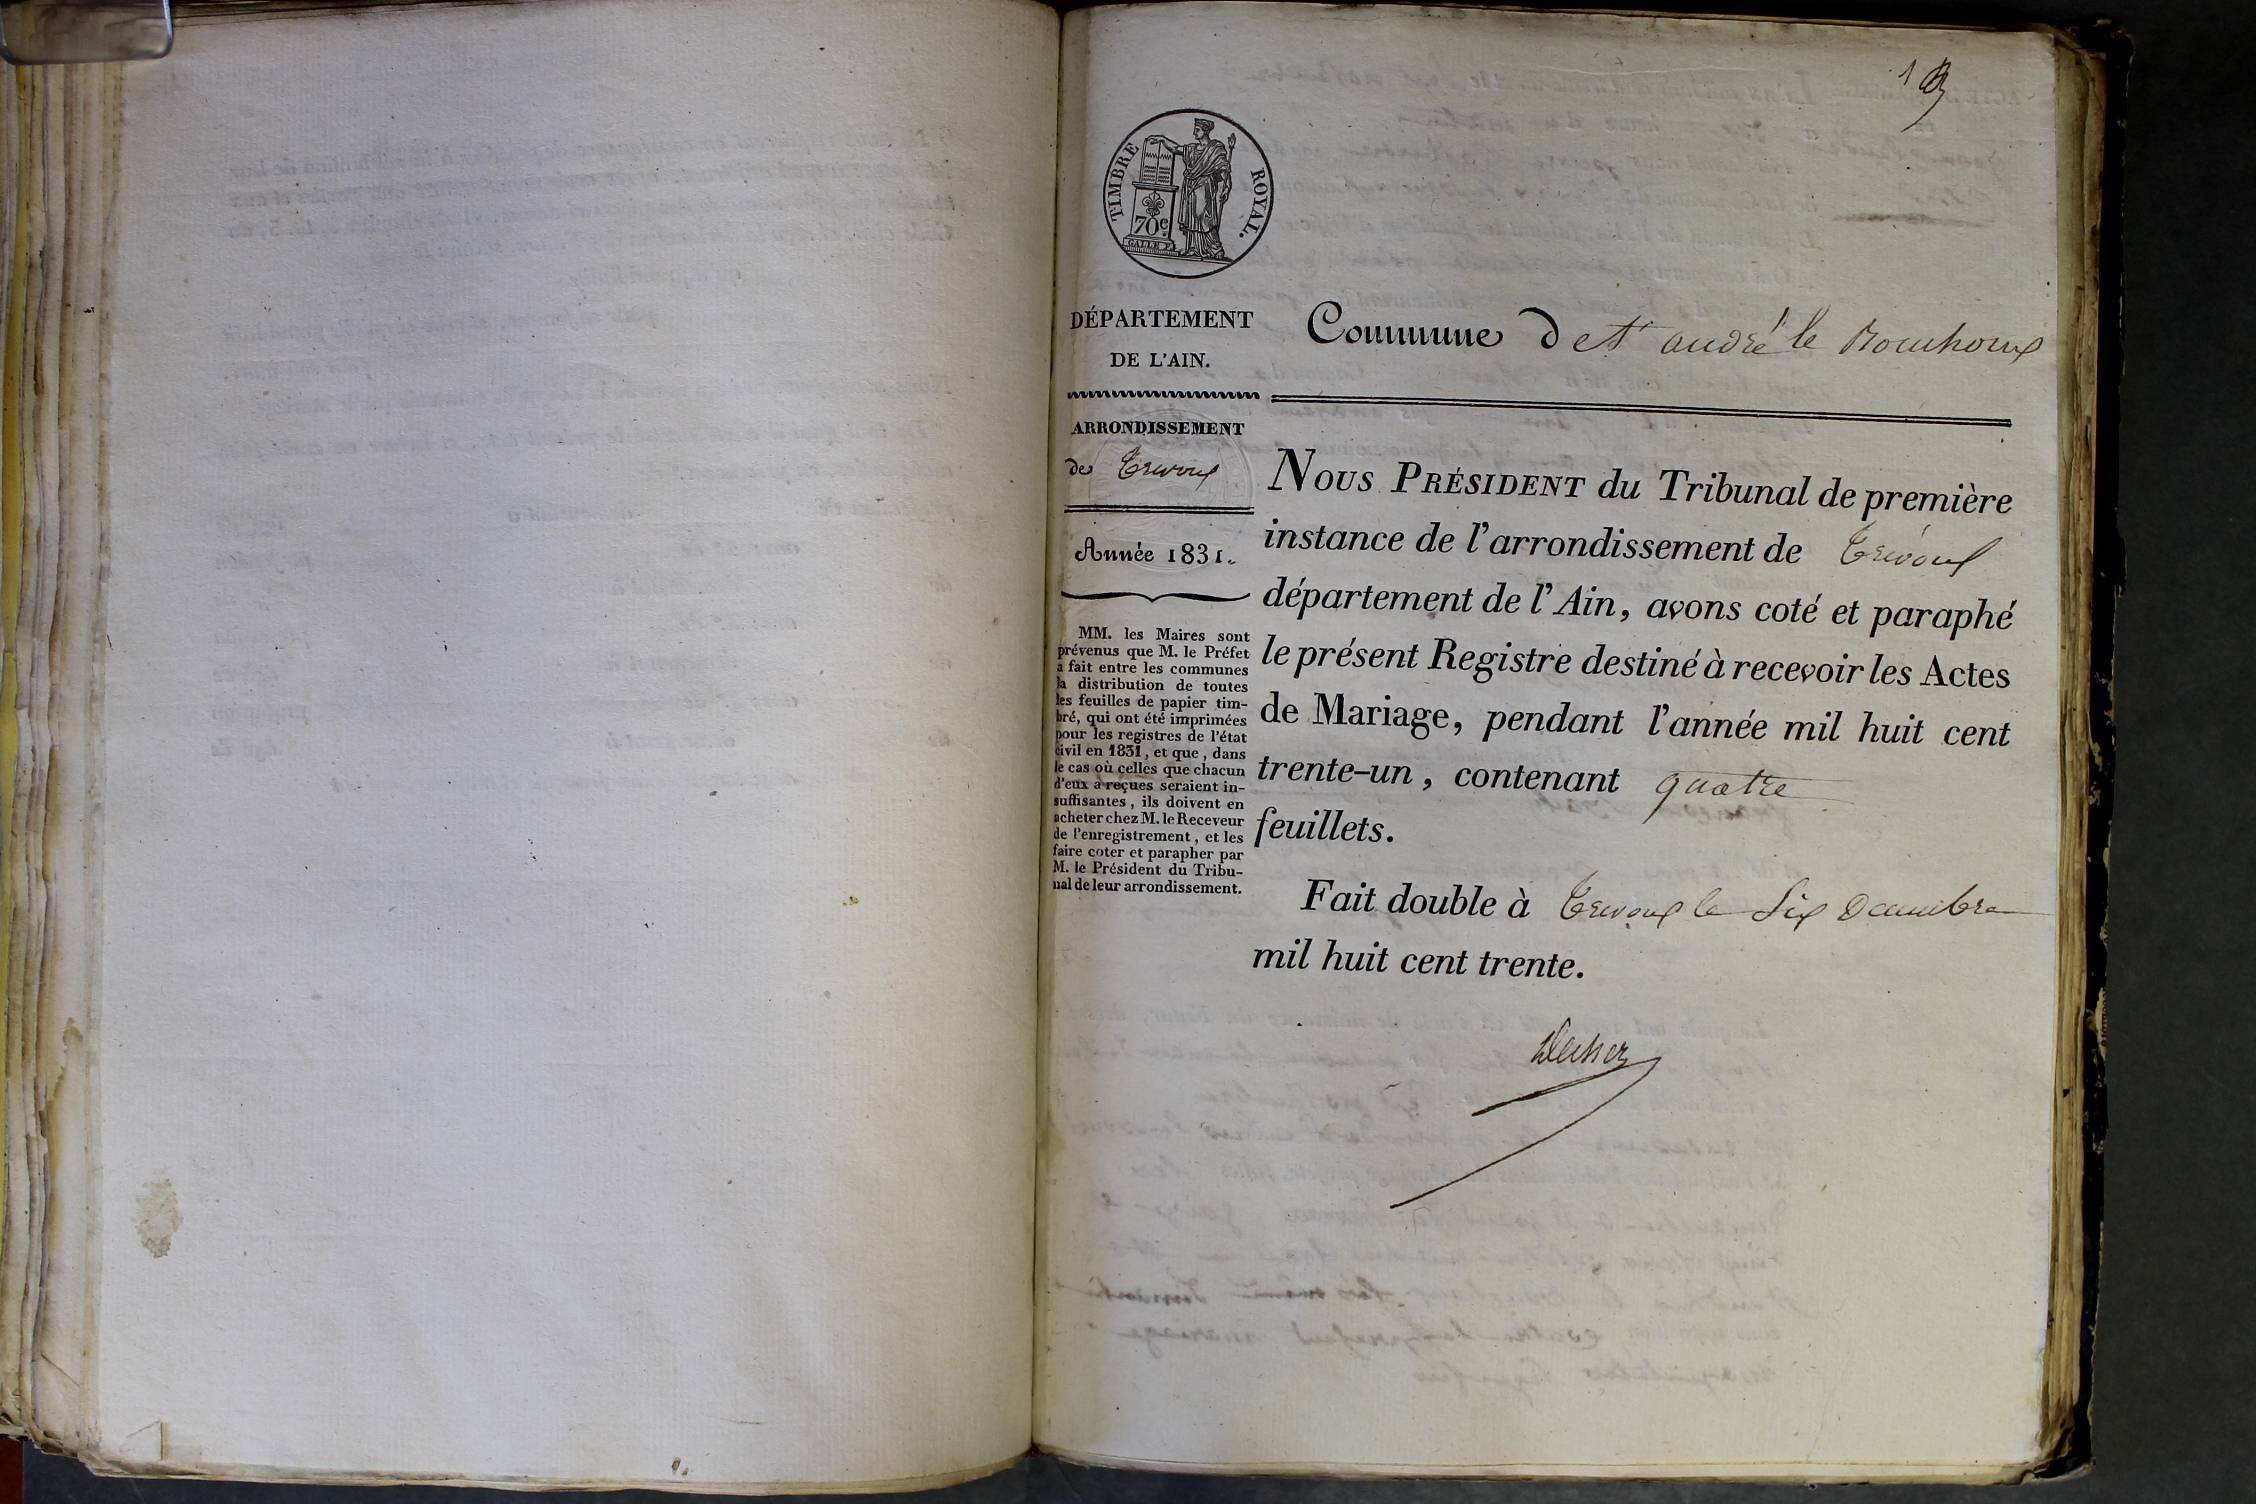 1
TIMBRE ROYAL.
70c.
DÉPARTEMENT
DE L'AIN.
Commune de St andré le Bouchoux
ARRONDISSEMENT
de Trevoux
Année 1831.
MM. les Maires sont
prévenus que M. le Préfet
a fait entre les communes
la distribution de toutes
les feuilles de papier tim-
bré, qui ont été imprimées
pour les registres de l'état
civil en 1831, et que, dans
le cas où celles que chacun
d'eux a reçues seraient in-
suffisantes, ils doivent en
acheter chez M. le Receveur
de l'enregistrement, et les
faire coter et parapher par
M. le Président du Tribu-
nal de leur arrondissement.
NOUS PRÉSIDENT du Tribunal de première
instance de l'arrondissement de Trévoux
département de l'Ain, avons coté et paraphé
le présent Registre destiné à recevoir les Actes
de Mariage, pendant l'année mil huit cent
trente-un, contenant quatre
feuillets.
Fait double à Trevoux le Six Decembre
mil huit cent trente.